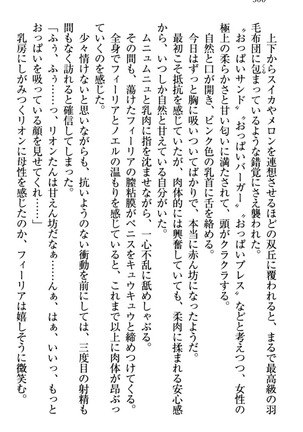 上下からスイカやメロンを連想させるほどの双丘に包まれて、まるで最高級の羽
毛布団に包まっているような錯覚にさえ襲われた。
〝おっぱいサンド〟〝おっぱいバーガー〟〝おっぱいプレス〟などと考えつつ、女性の
極上の柔らかさと甘い匂いに満たされて、頭がクラクラする。
自然と口が開き、ピンク色の乳首に舌を絡める。
最初こそ抵抗を感じていたが、肉体的には興奮していても、柔肉によるまるで安心感
から、いつしか自然と甘えている自分がいた。
ムニュムニュと乳肉に指を沈ませながら、一心不乱に舐めしゃぶる。
その間も、蕩けたフィーリアの膣粘膜がペニスをキュウキュウと締めつけてくる。
全身でフィーリアとノエルの温もりを感じていると、これまで以上に肉体が昂ぶっ
て、
少々情けないと思いながらも、抗いようのない衝動を前にしては、三度目の射精も
間もなく訪れると確信してしまった。
「ふぅ、ふふ……っ、リオンたんは甘えん坊だなぁ……んぁ、はぁ、いいっ、もっと
おっぱいを吸っている顔を見せてくれ……」
乳房にしがみつくリオンに母性を感じたのか、フィーリアは嬉しそうに微笑む。